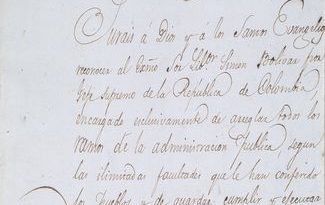 Jurais á Dios y á los Santos Evangelios
reconocer al Exmo Sor Libr Simon Bolivar por
Gefe supremo de la Republica de Colombia,
encargado esclusivamente de arreglar todos los
ramos de la administracion publica, segun
las ilimitadas facultades que le han conferido
los Pueblos y de guardar cumplir y executar